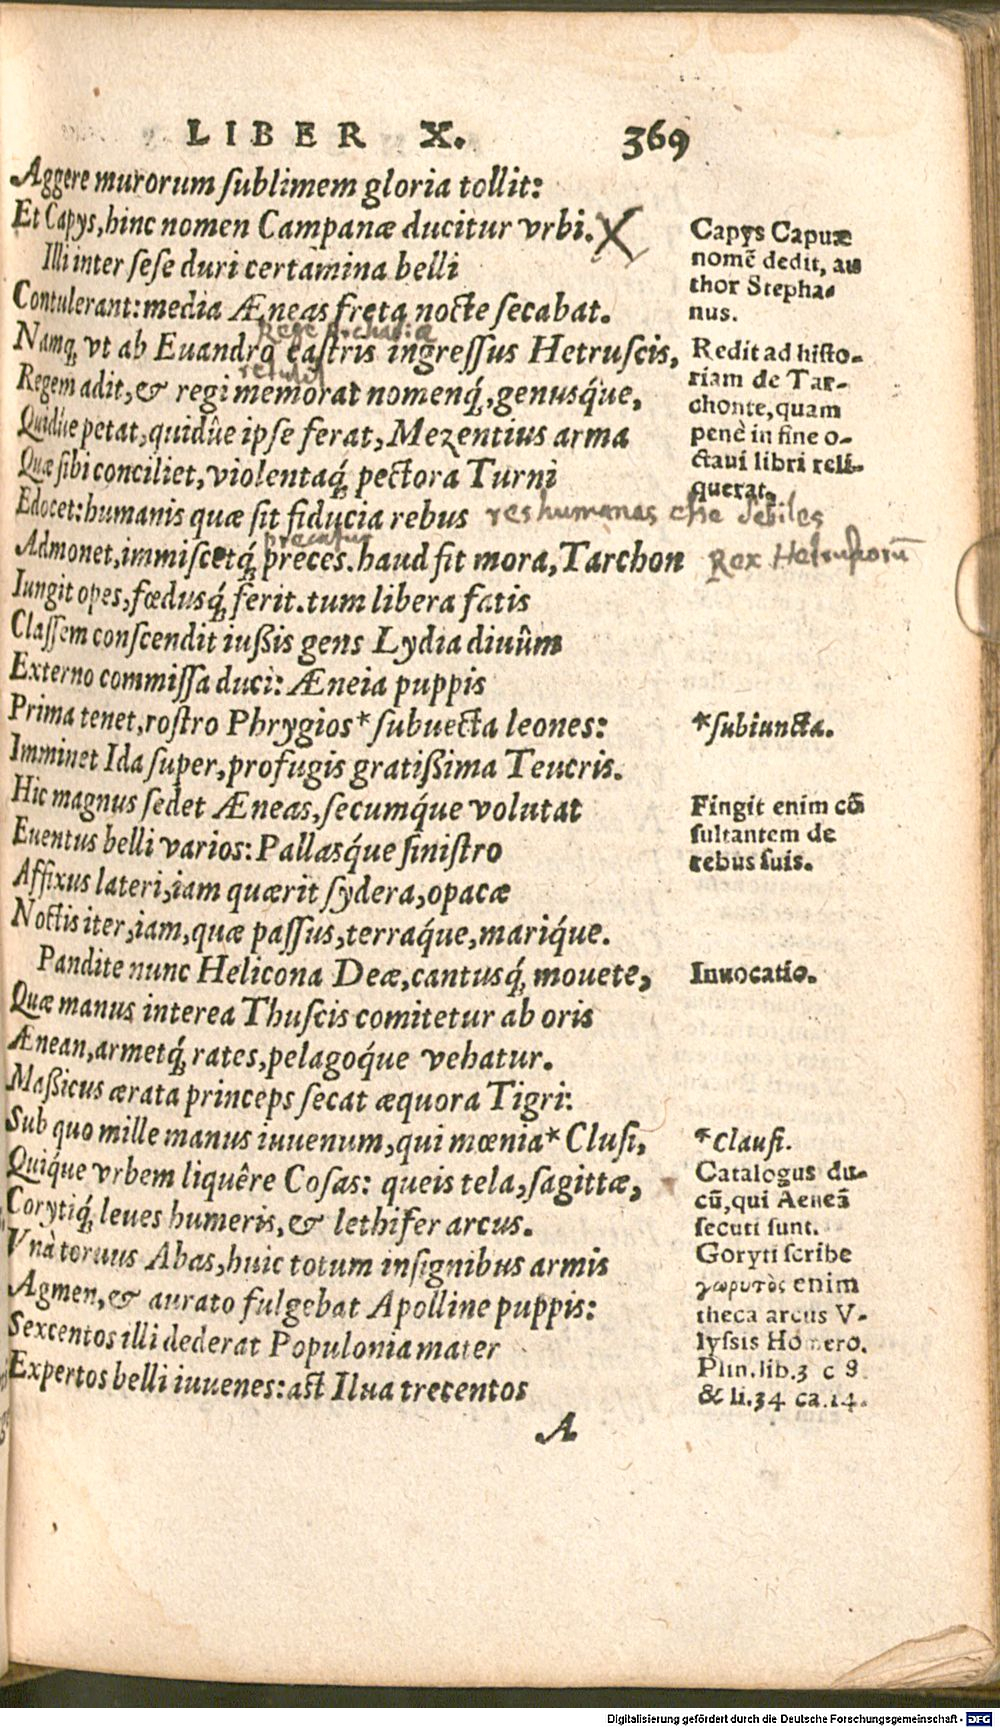 LIBER X. 369
Aggere murorum ſublimem gloria tollit:
Et Capys, hinc nomen Campanæ ducitur vrbi. X
Illi inter ſeſe duri certamina belli
Contulerant: media Æneas freta nocte ſecabat.
Rege Archadiæ
Namq́; vt ab Euandro caſtris ingreſſus Hetruſcis,
retulit
Regem adit, & regi memorat nomenq́;, genusq́ue,
Quidûe petat, quidûe ipſe ferat, Mezentius arma
Quæ ſibi conciliet, violentaq́; pectora Turni
Edocet: humanis quæ ſit fiducia rebus res humanas che debiles
precatur
Admonet, immiſcetq́; preces. haud fit mora, Tarchon Rex Hetruſcorū
Iungit opes, fœdusq́; ferit. tum libera fatis
Claſſem conſcendit iußis gens Lydia diuûm
Externo commiſſa duci: Æneia puppis
Prima tenet, roſtro Phrygios* ſubuecta leones:
Imminet Ida ſuper, profugis gratißima Teucris.
Hic magnus ſedet Æneas, ſecumq́ue volutat
Euentus belli varios: Pallasq́ue ſiniſtro
Affixus lateri, iam quærit ſydera, opacæ
Noctis iter, iam, quæ paſſus, terraq́ue, mariq́ue.
Pandite nunc Helicona Deæ, cantusq́; mouete,
Quæ manus interea Thuſcis comitetur ab oris
Ænean, armetq́; rates, pelagoq́ue vehatur.
Maßicus ærata princeps ſecat æquora Tigri:
Sub quo mille manus iuuenum, qui mœnia* Cluſi,
Quiq́ue vrbem liquêre Coſas: queis tela, ſagittæ,
Corytiq́; leues humeris, & lethifer arcus.
Vnà toruus Abas, huic totum inſignibus armis
Agmen, & aurato fulgebat Apolline puppis:
Sexcentos illi dederat Populonia mater
Expertos belli iuuenes: aſt Ilua trecentos
A
Capys Capuæ
nomē dedit, au
thor Stepha-
nus.
Redit ad hiſto-
riam de Tar-
chonte, quam
penè in fine o-
ctaui libri reli-
querat.
*ſubiuncta.
Fingit enim cō
ſultantem de
rebus ſuis.
Inuocatio.
*Clauſi.
Catalogus du-
cū, qui Aeneā
ſecuti ſunt.
Goryti ſcribe
γωρυτὸς enim
theca arcus V-
lyſsis Homero.
Plin. lib. 3 c 8.
& li. 34 ca. 14.
Digitalisierung gefördert durch die Deutsche Forschungsgemeinschaft - DFG